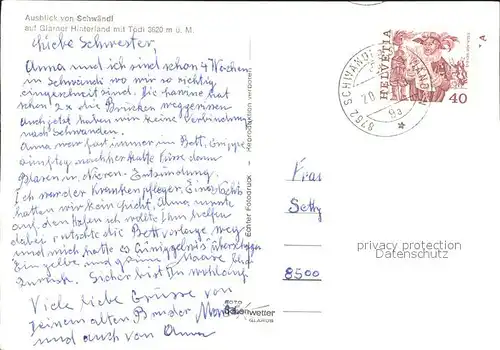 Ausblick von Schwändi
auf Glarner Hinterland mit Tödi 3620 m ü. M.
Liebe Schwester,
Anna und ich sind schon 4 Wochen
in Schwändi wo wir so richtig
eingeschneit sind. Die Lawine hat
schon 2 x die Brücken weggerissen
auch jetzt haben wir keine Verbindung
nach Schwanden.
Anna war fast immer im Bett, Grippe
nachher kalte Füsse dann
Blasen u. Nieren-Entzündung.
Ich war der Krankenpfleger. Eines Nachts
hatten wir kein Licht, Anna musste
auf den Hafen ich wollte ihr helfen
dabei rutschte die Bettvorlage weg
und mich hatte es
Ein gelbe und grüne Nase
zurück. Sicher bist Du wohlauf
Viele liebe Grüsse von
Deinem alten Bruder
und auch von Anna
Echter Fotodruck - Reproduktion verboten
FOTO
Schönwetter
GLARUS
8762 SCHWANDEN
HELVETIA
40
Frau
8500
privacy protection
Datenschutz